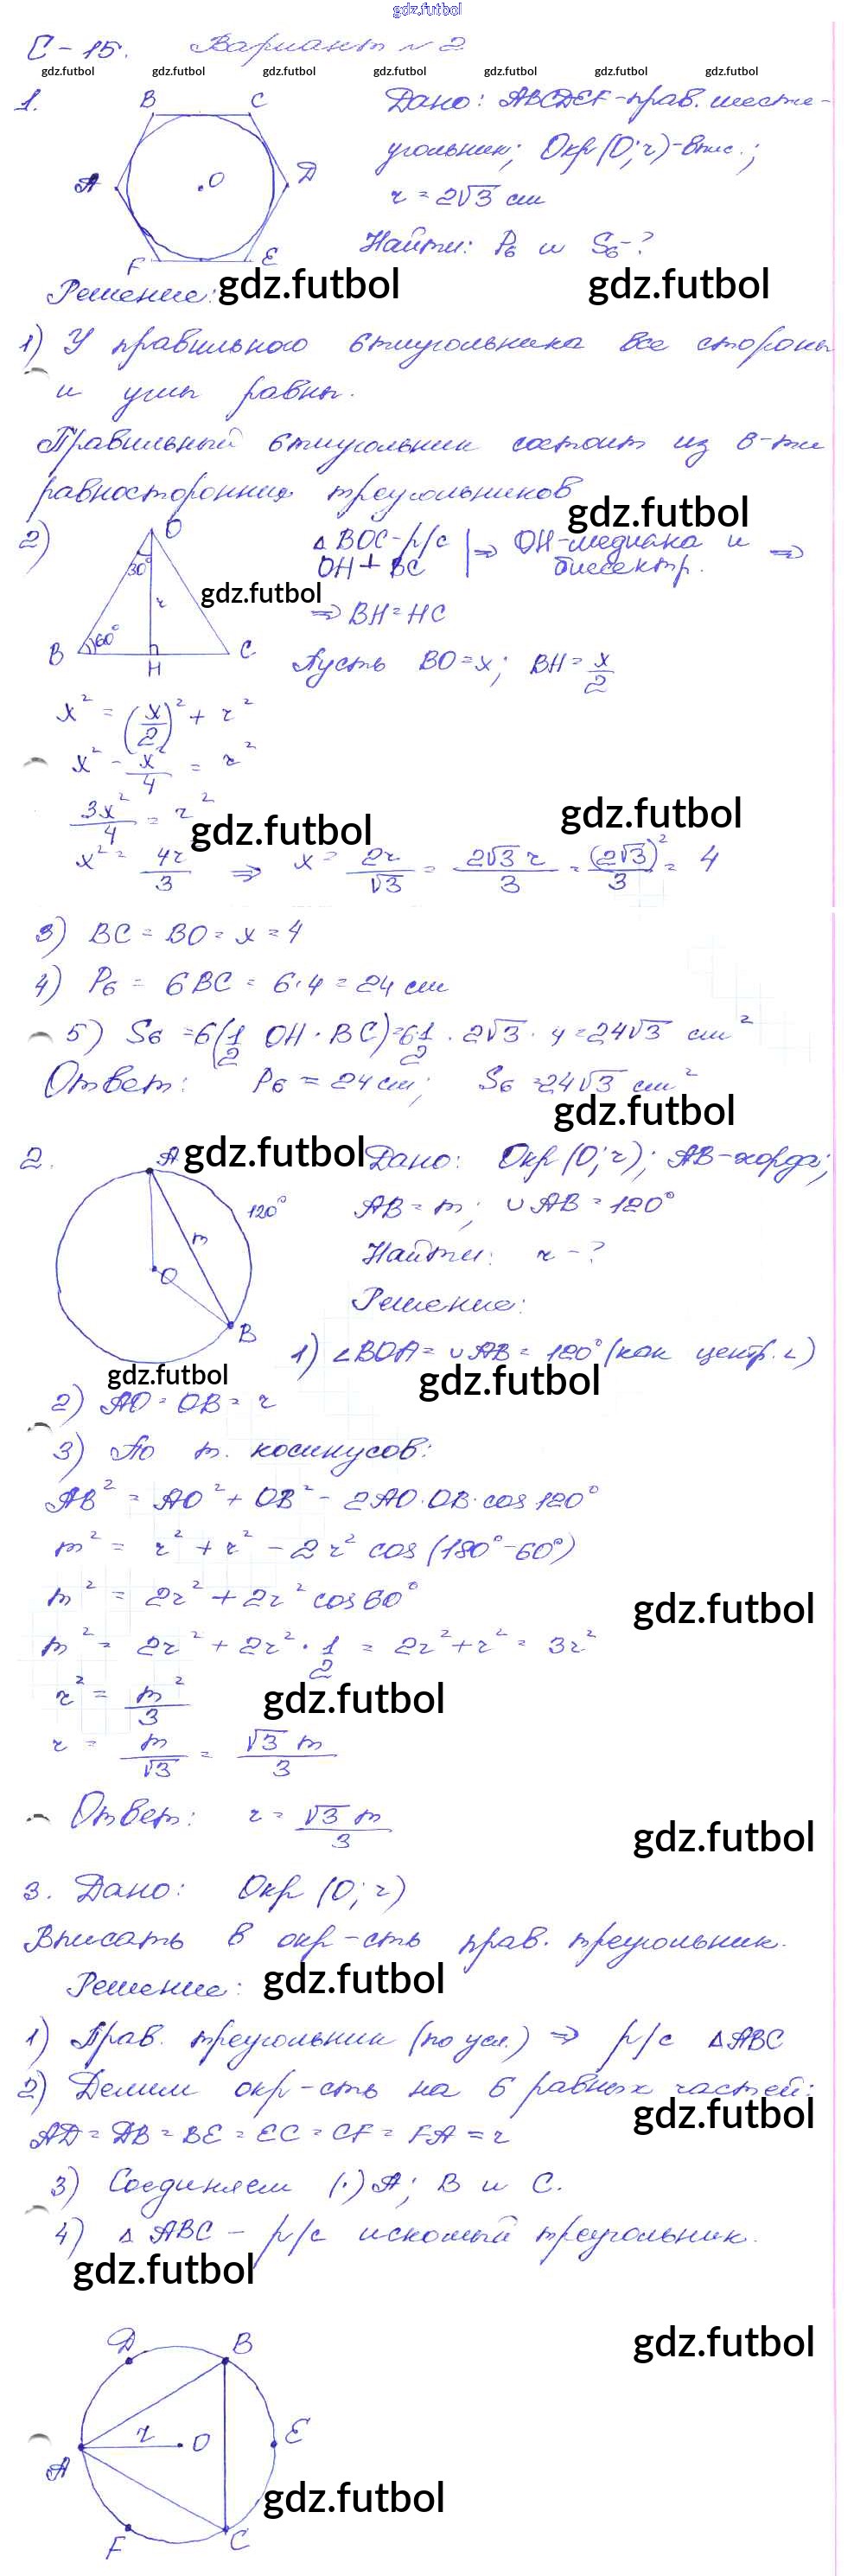 gdz.futbol
С-15. Вариант №2
gdz.futbol gdz.futbol gdz.futbol gdz.futbol gdz.futbol gdz.futbol gdz.futbol
1. B C A D O F E
Дано: ABCDEF-прав. шести-
угольник; Окр(O;r)-впис.;
r = 2√3 см
Найти: P₆ и S₆-?
Решение: gdz.futbol gdz.futbol
1) У правильного 6тиугольника все стороны
и углы равны.
Правильный 6тиугольник состоит из 6-ти
равносторонних треугольников
gdz.futbol
2) O 30° r 60° B H C
△BOC-р/с | ⇒ OH-медиана и ⇒
OH ⊥ BC | биссектр.
gdz.futbol
⇒ BH = HC
Пусть BO = x; BH = x/2
x² = (x/2)² + r²
x² - x²/4 = r²
3x²/4 = r²
gdz.futbol gdz.futbol
x² = 4r/3 ⇒ x = 2r/√3 = 2√3 r/3 = (2√3)²/3 = 4
3) BC = BO = x = 4
4) P₆ = 6BC = 6·4 = 24 см
5) S₆ = 6(1/2 OH · BC) = 6·1/2 · 2√3 · 4 = 24√3 см²
Ответ: P₆ = 24 см; S₆ = 24√3 см²
gdz.futbol
2. A gdz.futbol Дано: Окр(O;r); AB-хорда;
120° m O B
AB = m; ∪AB = 120°
Найти: r-?
Решение:
1) ∠BOA = ∪AB = 120° (как центр. ∠)
gdz.futbol gdz.futbol
2) AO = OB = r
3) По т. косинусов:
AB² = AO² + OB² - 2AO·OB·cos 120°
m² = r² + r² - 2r² cos (180°-60°)
m² = 2r² + 2r² cos 60°
gdz.futbol
m² = 2r² + 2r² · 1/2 = 2r² + r² = 3r²
r² = m²/3
gdz.futbol
r = m/√3 = √3 m/3
Ответ: r = √3 m/3
gdz.futbol
3. Дано: Окр (O;r)
Вписать в окр-сть прав. треугольник.
Решение: gdz.futbol
1) Прав. треугольник (по усл.) ⇒ р/с △ABC
2) Делим окр-сть на 6 равных частей:
gdz.futbol
AD = DB = BE = EC = CF = FA = r
3) Соединяем (·) A; B и C.
4) △ABC - р/с искомый треугольник.
gdz.futbol
gdz.futbol
D B
r O E
A
gdz.futbol
F C